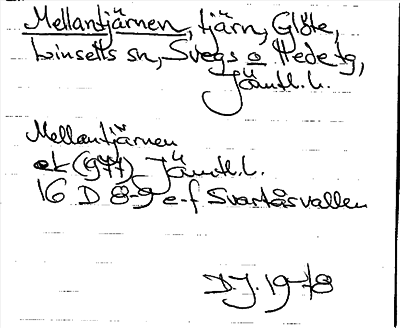 Mellantjärnen, tjärn, Glöte,
Linsells sn, Svegs o Hede tg,
Jämtl. l.
Mellantjärnen
ek (977) Jämtl. l.
16 D 8-9 e-f Svartåsvallen
D.J. 1978